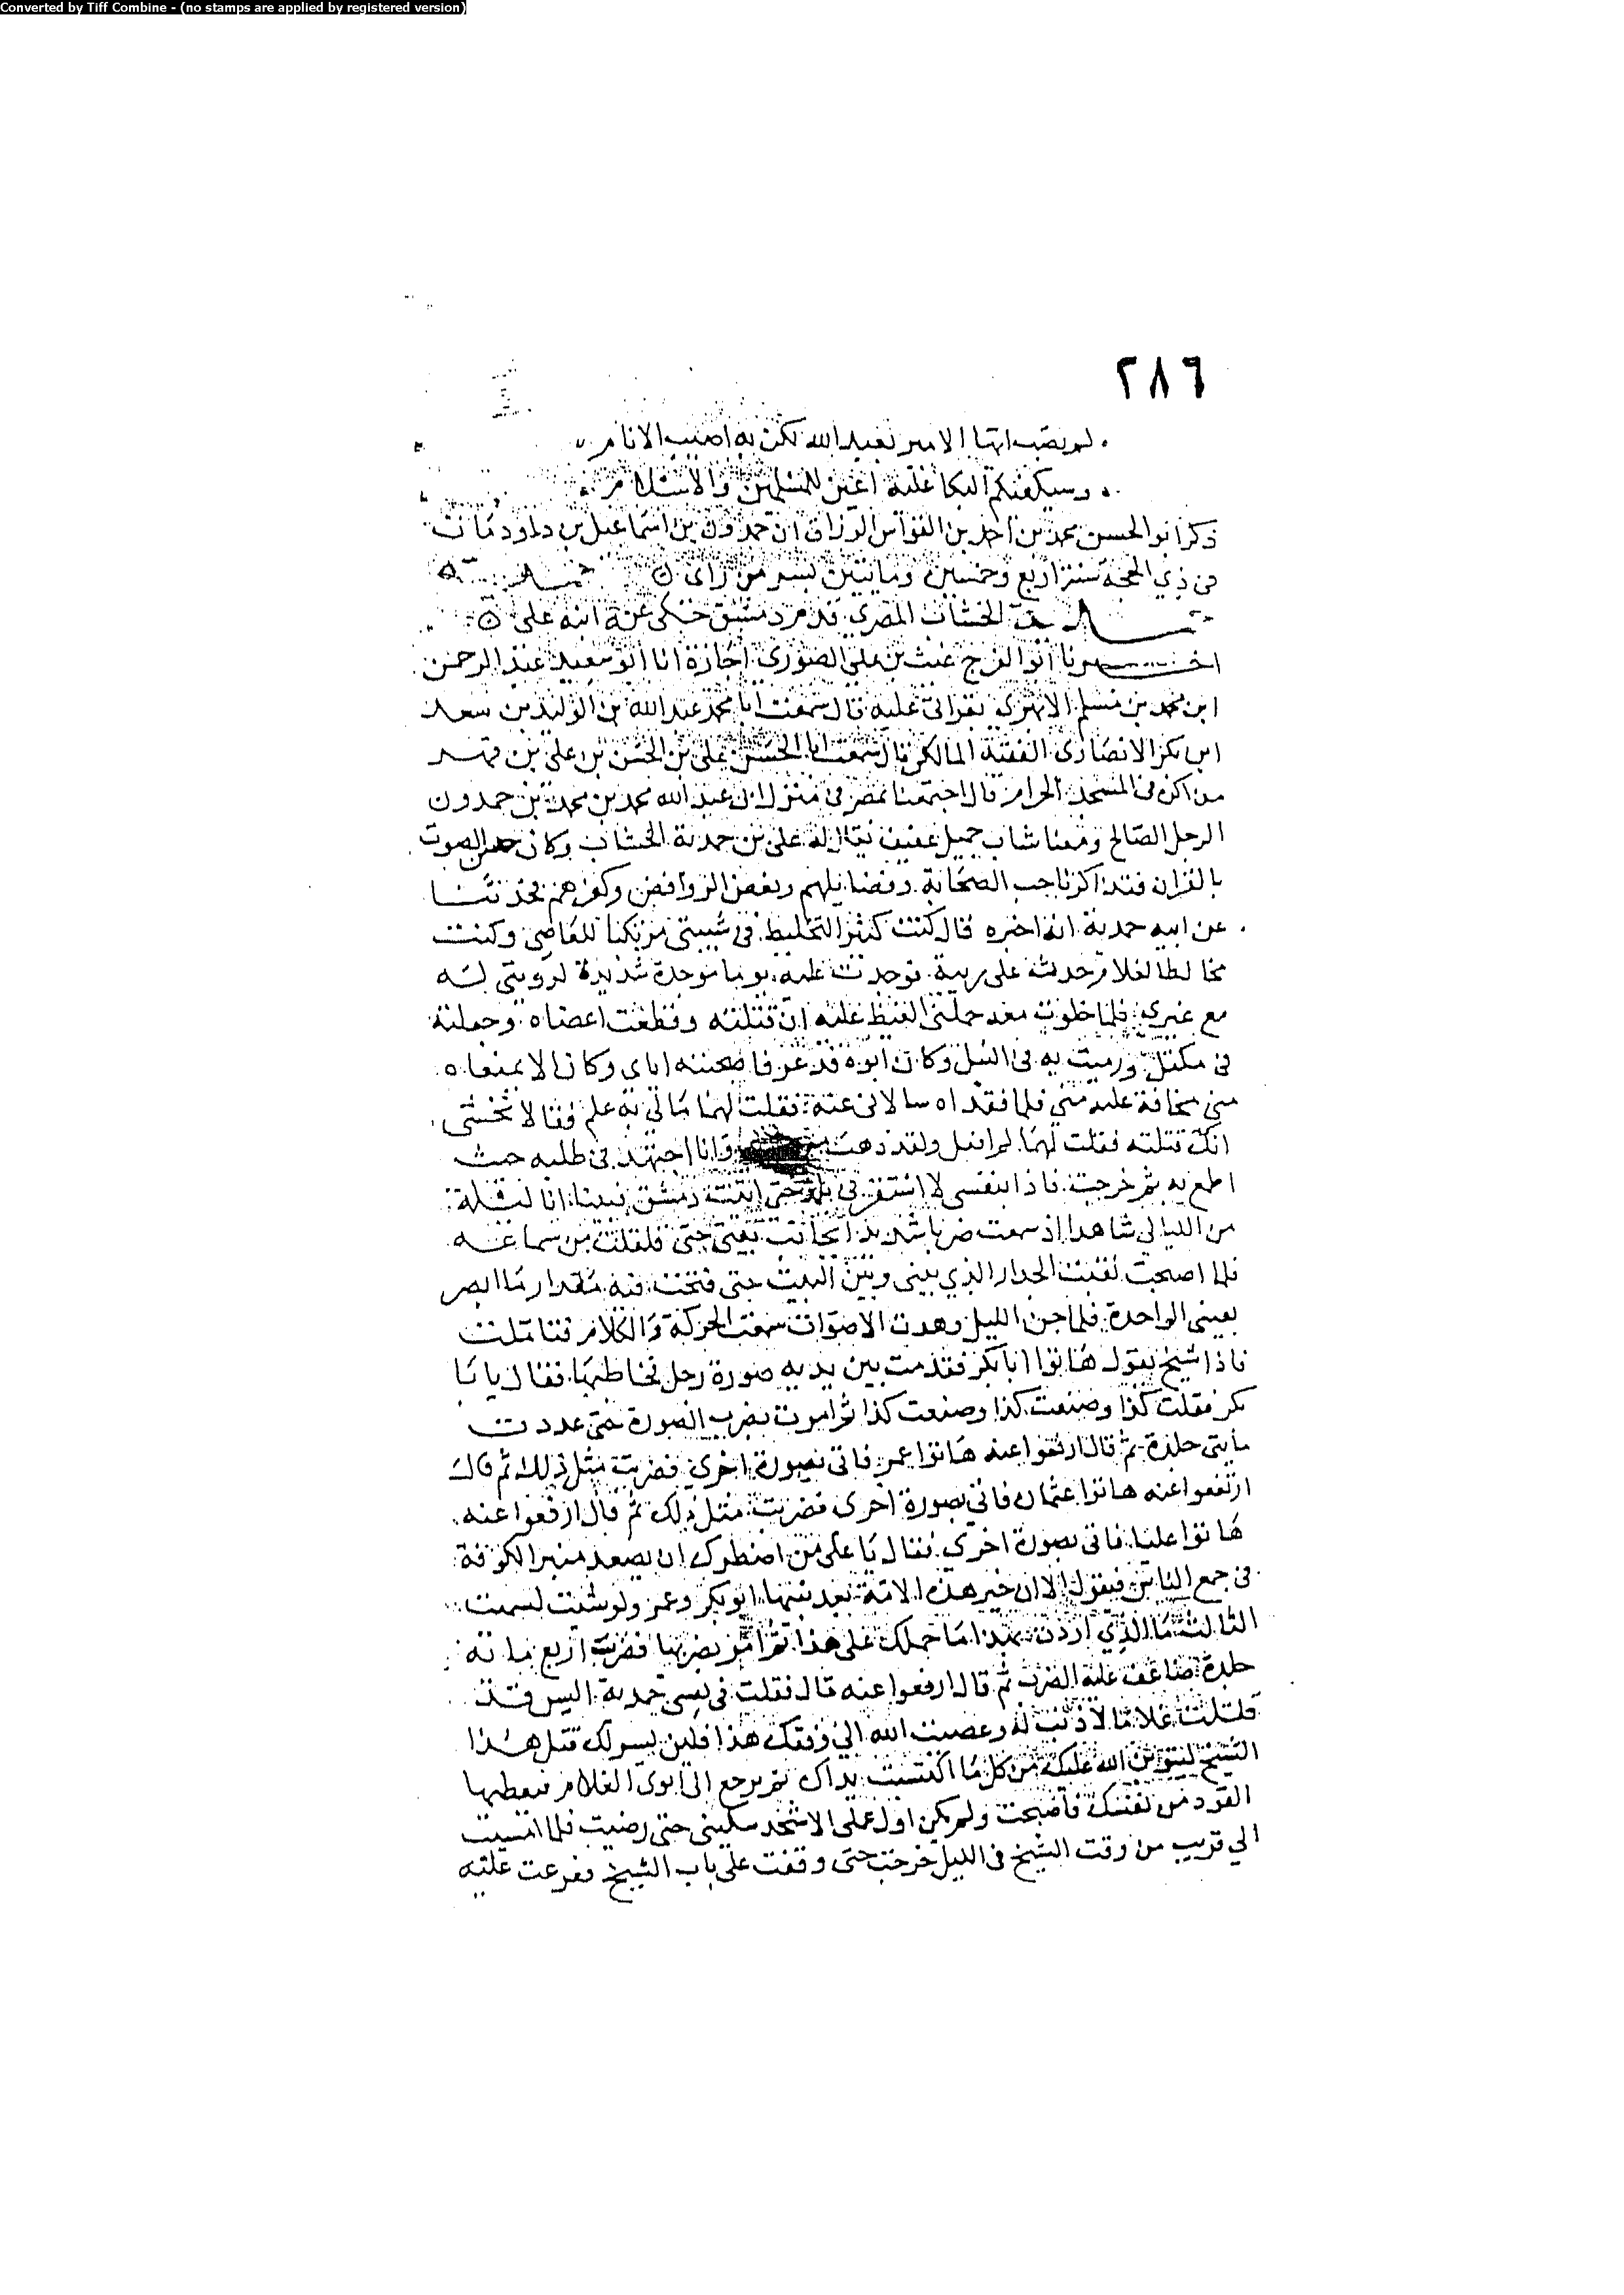 Converted by Tiff Combine - (no stamps are applied by registered version)
٢٨٦
لم يصب ايها الامير بعبد الله لكن به اصيب الانام
وسيكفيكم البكا عليه اعين للمسلمين والاسلام
ذكر ابو الحسن محمد بن احمد بن القواس الوراق ان حمدون بن اسماعيل بن داود مات
في ذي الحجة سنة اربع وخمسين وماتتين بسر من راى
الخشاب المصري قدم دمشق حكى عنه ابنه على
اخبرنا ابو الفرج غيث بن علي الصوري اجازة انا ابو سعيد عبد الرحمن
ابن محمد بن مسلم الابهري بقراتي عليه قال سمعت ابا محمد عبد الله بن الوليد بن سعد
ابن بكر الانصاري الفقيه المالكي قال سمعت ابا الحسن على بن الحسن بن على بن فهر
من في المسجد الحرام قال اجتمعنا بمصر في منزل ابي عبد الله محمد بن محمد بن حمدون
الرجل الصالح ومعنا شاب جميل عفيف يقال له على بن حمدية الخشاب وكان حسن الصوت
بالقران فتذاكرنا حب الصحابة وفضايلهم وبغض الروافض وكفرهم فحدثنا
عن ابيه حمدية انه اخبره قال كنت كثير التخليط في شبيبتي مرتكبا للمعاصي وكنت
مخالطا لغلام حدث على ريبة فوجدت عليه يوما موجدة شديدة لرويتي له
مع غيري فلما خلوت معه حملني الغيظ عليه ان قتلته وقطعت اعضاه وجعلته
في مكتل ورميت به في النيل وكان ابوه قد عرفا صحبته اياى وكانا لا يمنعاه
مني مخافة عليه مني فلما فقداه سالاني عنه فقلت لهما مالي به علم فقالا نخشى
انك قتلته فقلت لهما لم افعل ولقد ذهب وانا اجتهد في طلبه حيث
اطمع به ثم خرجت فاذا بنفسي لا استقر في بلد حتى اتيت دمشق فبينا انا ليلة
من الليالي شاهدا اذ سمعت ضربا شديدا بجانب بيتي حتى قلقلت من سماعه
فلما اصبحت نقبت الجدار الذي بيني وبين البيت حتى فتحت فيه مقدار ما ابصر
بعيني الواحدة فلما جن الليل وهدت الاصوات سمعت الحركة والكلام فتاملت
فاذا شيخ يقول هاتوا ابا بكر فقدمت بين يديه صورة رجل تخاطبها فقال يابا
بكر فعلت كذا وصنعت كذا وصنعت كذا ثم امرت بضرب الصورة حتى عددت
مايتي جلدة ثم قال ارفعوا عنه هاتوا عمر فاتي بصورة اخرى فضربت مثل ذلك ثم قال
ارفعوا عنه هاتوا عثمان فاتي بصورة اخرى فضربت مثل ذلك ثم قال ارفعوا عنه
هاتوا عليا فاتي بصورة اخرى فقال يا على من اضطرك ان يصعد منبر الكوفة
في جمع الناس فيقول الا ان خير هذه الامة بعد نبيها ابو بكر وعمر ولو شئت لسميت
الثالث ما الذي اردت بهذا ما حملك على هذا ثم امر بضربها فضربت اربع ماية
جلدة ضاعف عليه الضرب ثم قال ارفعوا عنه قال فقلت في نفسي حمدية اليس قد
قتلت غلاما لا ذنب له وعصيت الله الى وقتك هذا فلين يسر لك قتل هذا
الشيخ ليتوبن الله عليك من كل ما اكتسبت يداك ثم يرجع الى ابوى الغلام فيعطيها
القود من نفسك فاصبحت ولم يكن اول عملي الا شحذ سكيني حتى رضيت فلما امسيت
الي قريب من وقت الشيخ في الليل خرجت حتى وقفت على باب الشيخ فقرعت عليه